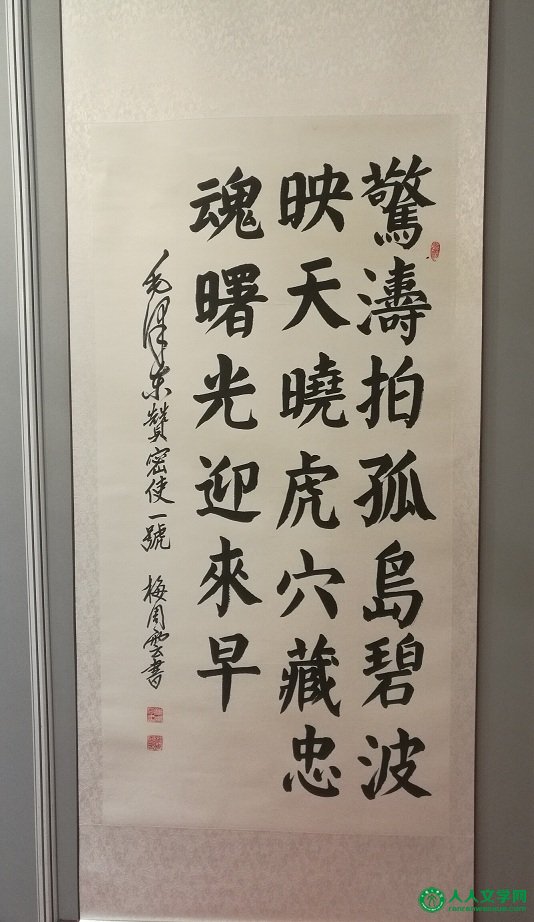 驚濤拍孤島碧波
映天曉虎穴藏忠
魂曙光迎來早
毛澤东贊密使一號 梅周雲書
人人文学网
renrenwenxue.com